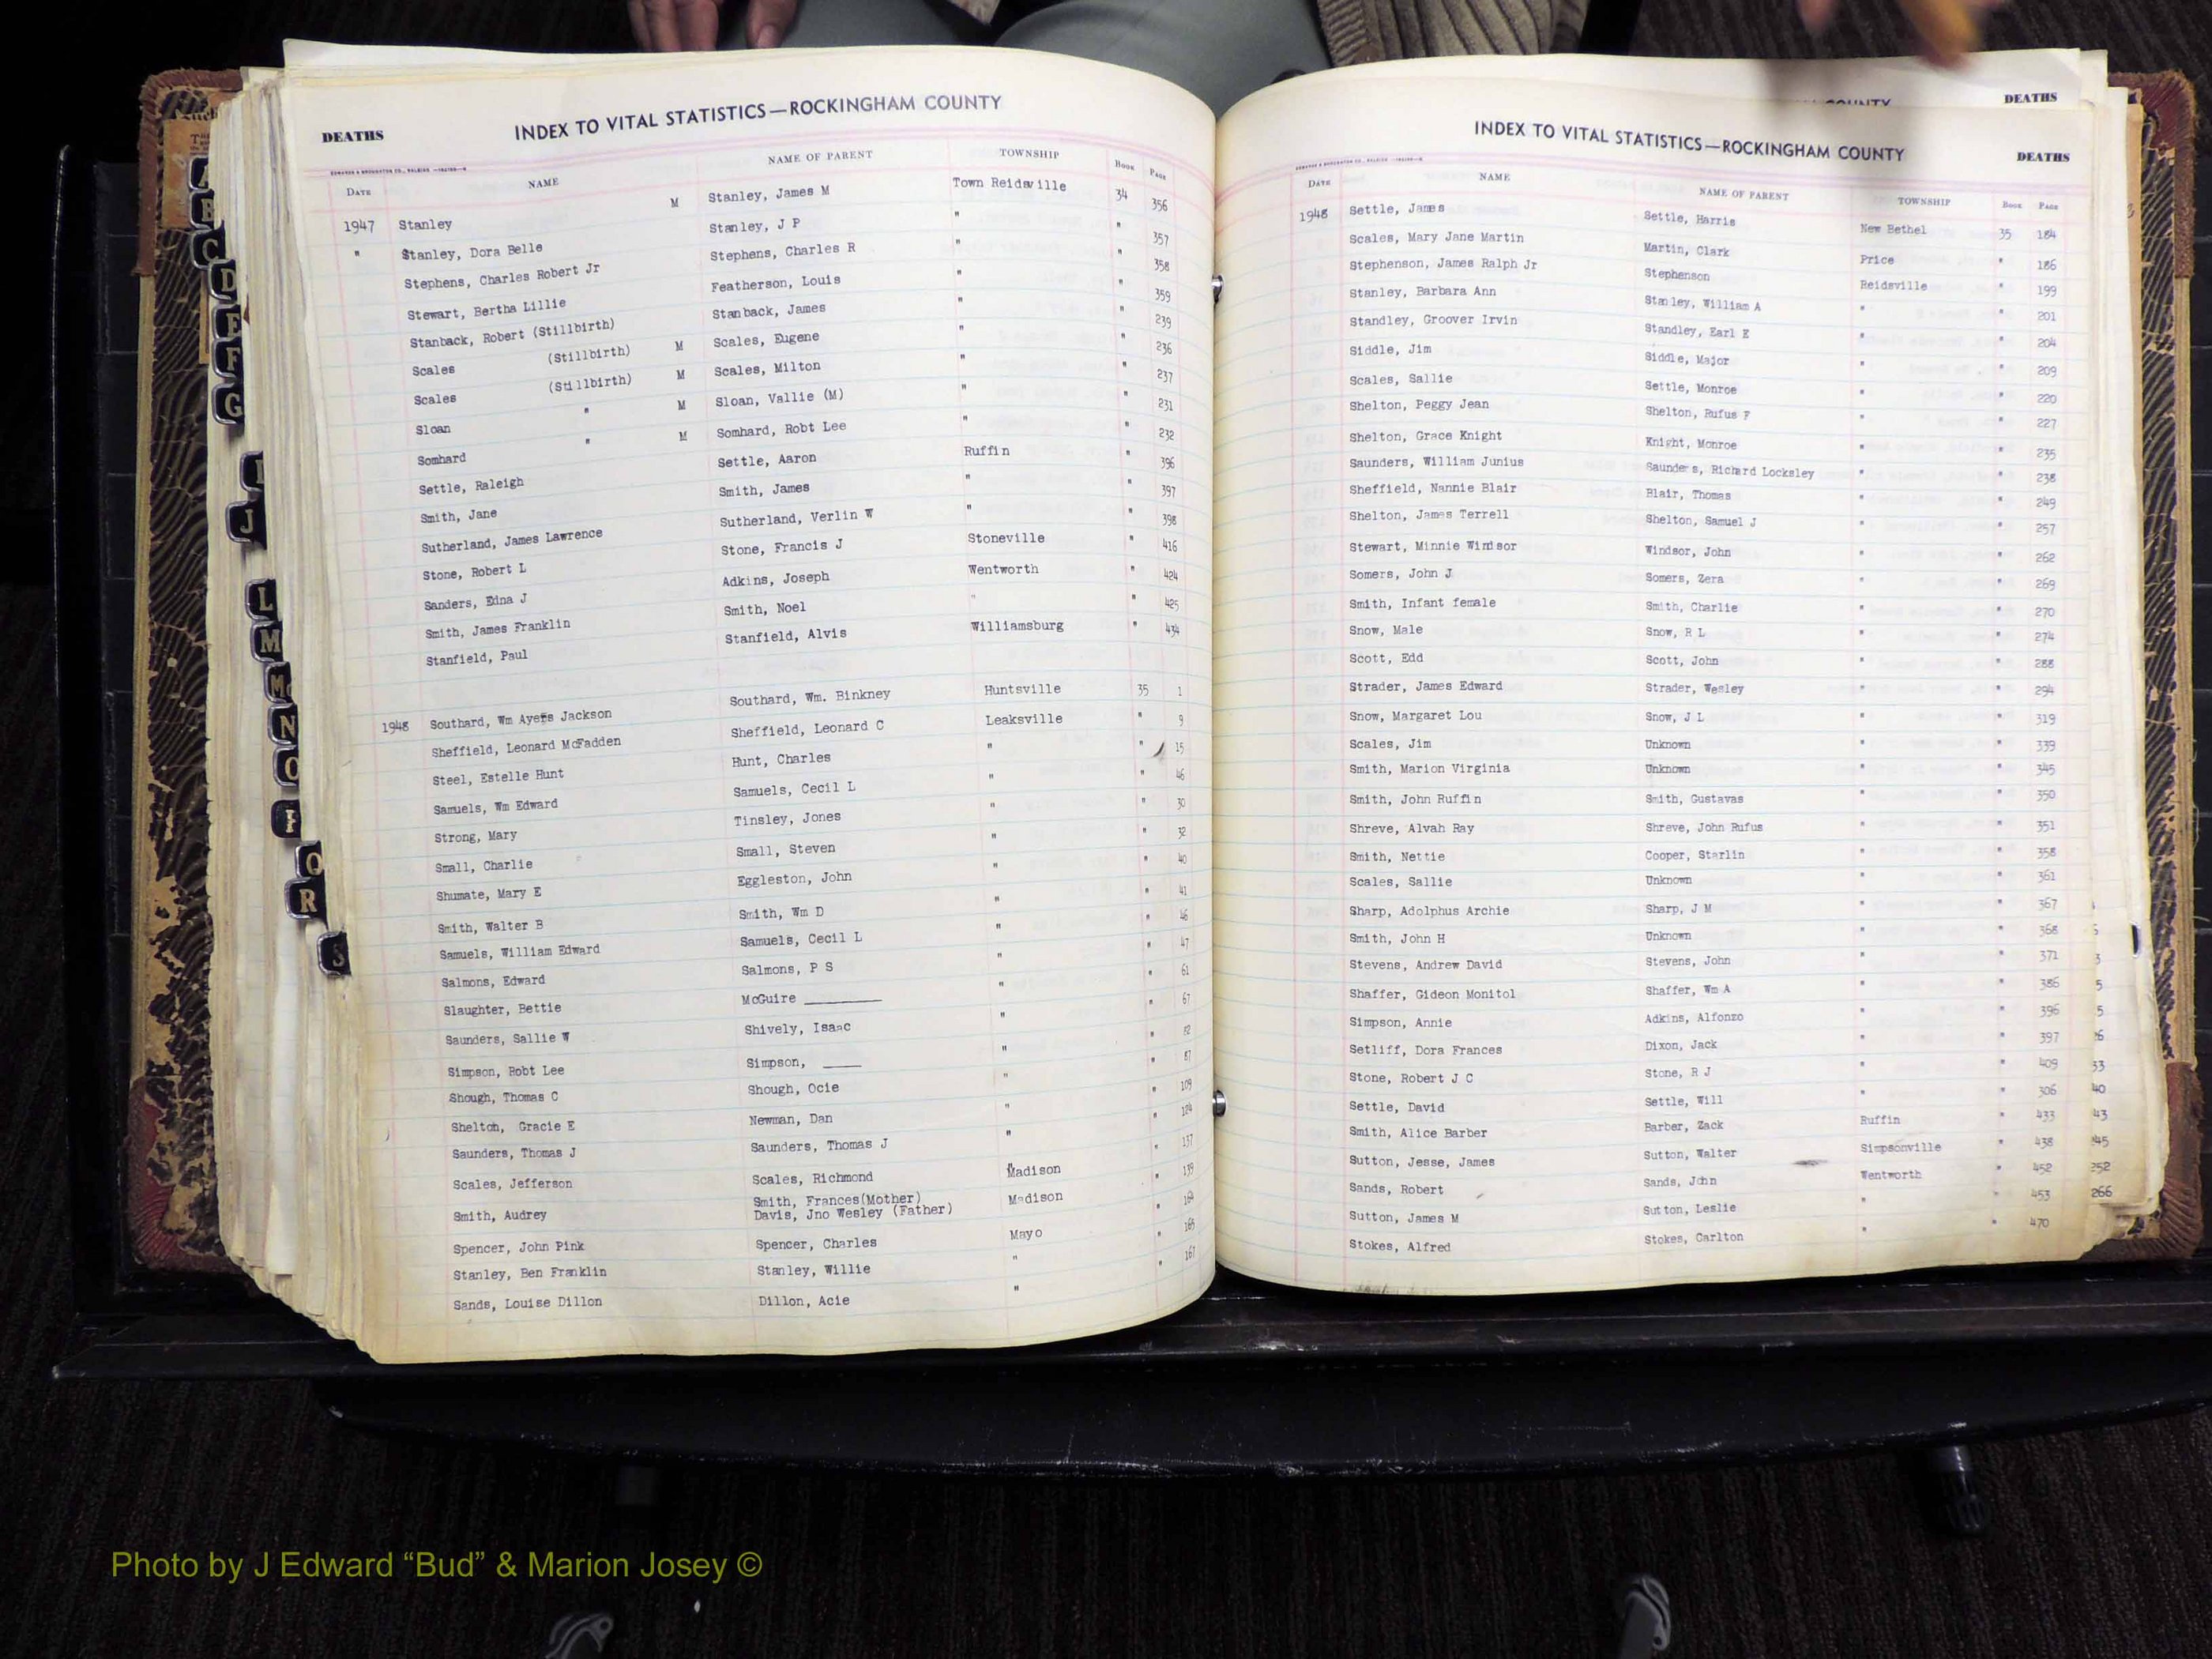 DEATHS INDEX TO VITAL STATISTICS—ROCKINGHAM COUNTY
DATE NAME NAME OF PARENT TOWNSHIP BOOK PAGE
1947 Stanley M Stanley, James M Town Reidsville 34 356
" Stanley, Dora Belle Stanley, J P " " 357
Stephens, Charles Robert Jr Stephens, Charles R " " 358
Stewart, Bertha Lillie Featherson, Louis " " 359
Stanback, Robert (Stillbirth) Stanback, James " " 239
Scales (Stillbirth) M Scales, Eugene " " 236
Scales (Stillbirth) M Scales, Milton " " 237
Sloan " M Sloan, Vallie (M) " " 231
Somhard " M Somhard, Robt Lee " " 232
Settle, Raleigh Settle, Aaron Ruffin " 396
Smith, Jane Smith, James " " 397
Sutherland, James Lawrence Sutherland, Verlin W " " 398
Stone, Robert L Stone, Francis J Stoneville " 416
Sanders, Edna J Adkins, Joseph Wentworth " 424
Smith, James Franklin Smith, Noel " " 425
Stanfield, Paul Stanfield, Alvis Williamsburg " 434
1948 Southard, Wm Ayers Jackson Southard, Wm. Binkney Huntsville 35 1
Sheffield, Leonard McFadden Sheffield, Leonard C Leaksville " 9
Steel, Estelle Hunt Hunt, Charles " " 15
Samuels, Wm Edward Samuels, Cecil L " " 46
Strong, Mary Tinsley, Jones " " 30
Small, Charlie Small, Steven " " 32
Shumate, Mary E Eggleston, John " " 40
Smith, Walter B Smith, Wm D " " 41
Samuels, William Edward Samuels, Cecil L " " 46
Salmons, Edward Salmons, P S " " 47
Slaughter, Bettie McGuire ________ " " 61
Saunders, Sallie W Shively, Isaac " " 67
Simpson, Robt Lee Simpson, ____ " "
Shough, Thomas C Shough, Ocie " " 87
Shelton, Gracie E Newman, Dan " " 109
Saunders, Thomas J Saunders, Thomas J " " 124
Scales, Jefferson Scales, Richmond Madison " 137
Smith, Audrey Smith, Frances(Mother) Madison " 139
Davis, Jno Wesley (Father)
Spencer, John Pink Spencer, Charles Mayo "
Stanley, Ben Franklin Stanley, Willie " " 165
Sands, Louise Dillon Dillon, Acie " " 167
COUNTY DEATHS
INDEX TO VITAL STATISTICS—ROCKINGHAM COUNTY DEATHS
DATE NAME NAME OF PARENT TOWNSHIP BOOK PAGE
1948 Settle, James Settle, Harris New Bethel 35 184
Scales, Mary Jane Martin Martin, Clark Price " 186
Stephenson, James Ralph Jr Stephenson Reidsville " 199
Stanley, Barbara Ann Stanley, William A " " 201
Standley, Groover Irvin Standley, Earl E " " 204
Siddle, Jim Siddle, Major " " 209
Scales, Sallie Settle, Monroe " " 220
Shelton, Peggy Jean Shelton, Rufus F " " 227
Shelton, Grace Knight Knight, Monroe " " 235
Saunders, William Junius Saunders, Richard Locksley " " 238
Sheffield, Nannie Blair Blair, Thomas " " 249
Shelton, James Terrell Shelton, Samuel J " " 257
Stewart, Minnie Windsor Windsor, John " " 262
Somers, John J Somers, Zera " " 269
Smith, Infant female Smith, Charlie " " 270
Snow, Male Snow, R L " " 274
Scott, Edd Scott, John " " 288
Strader, James Edward Strader, Wesley " " 294
Snow, Margaret Lou Snow, J L " " 319
Scales, Jim Unknown " " 339
Smith, Marion Virginia Unknown " " 345
Smith, John Ruffin Smith, Gustavas " " 350
Shreve, Alvah Ray Shreve, John Rufus " " 351
Smith, Nettie Cooper, Starlin " " 358
Scales, Sallie Unknown " " 361
Sharp, Adolphus Archie Sharp, J M " " 367
Smith, John H Unknown " " 368
Stevens, Andrew David Stevens, John " " 371
Shaffer, Gideon Monitol Shaffer, Wm A " " 386
Simpson, Annie Adkins, Alfonzo " " 396
Setliff, Dora Frances Dixon, Jack " " 397
Stone, Robert J C Stone, R J " " 409
Settle, David Settle, Will " " 306
Smith, Alice Barber Barber, Zack Ruffin " 433
Sutton, Jesse, James Sutton, Walter Simpsonville " 438
Sands, Robert Sands, John Wentworth " 452
Sutton, James M Sutton, Leslie " " 453
Stokes, Alfred Stokes, Carlton " " 470
252
266
A
B
C
D
E
F
G
I
J
L
M
Mc
N
O
P
Q
R
S
Photo by J Edward “Bud” & Marion Josey ©